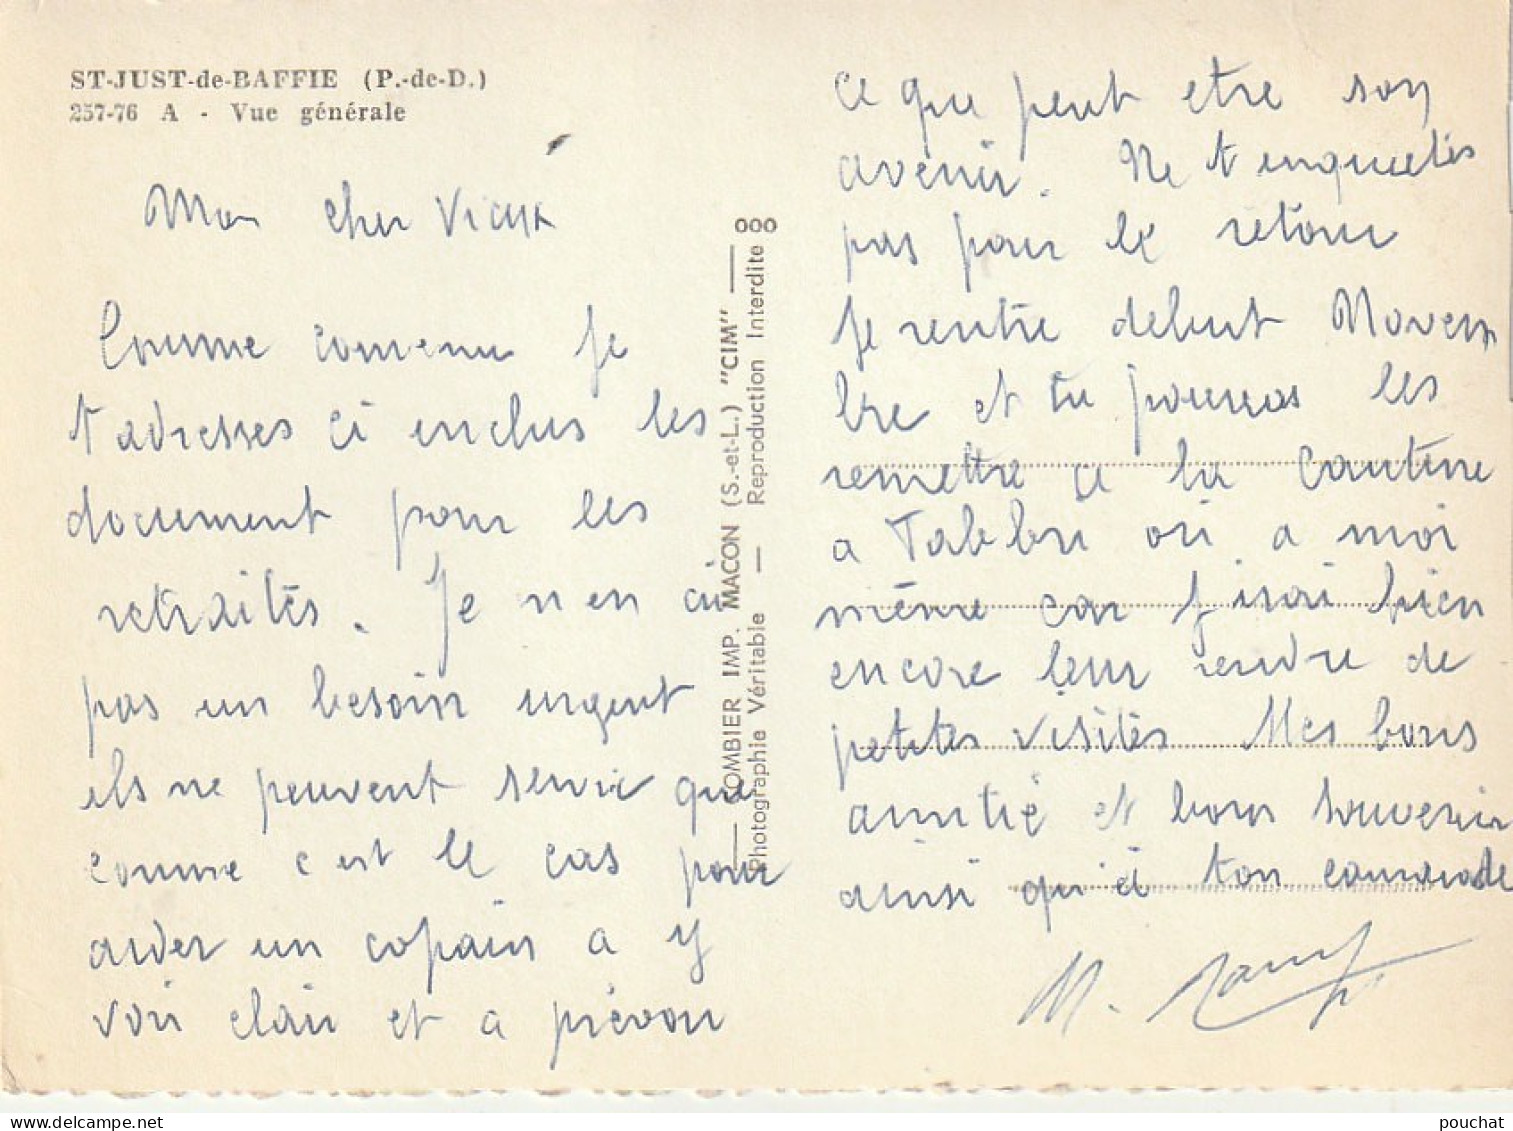 ST-JUST-de-BAFFIE (P.-de-D.)
257-76 A - Vue générale
Mon cher Vieux
Comme convenu je
t adresses ci enclus les
document pour les
retraités. Je n en ai
pas un besoin urgent
ils ne peuvent servir que
comme c est le cas pour
aider un copain a y
voir clair et a prévoir
COMBIER IMP. MACON (S.-et-L.) "CIM"
Photographie Véritable — Reproduction Interdite
ce que peut etre son
avenir. Ne t inquietes
pas pour le retour
Je rentre debut Novem
bre et tu pourras les
remettre a la cantine
a ou a moi
même car j irai bien
encore leur rendre de
petites visites Mes bons
amitié et bons souvenir
ainsi qu'à ton camarade
M.
delcampe.net
pouchat